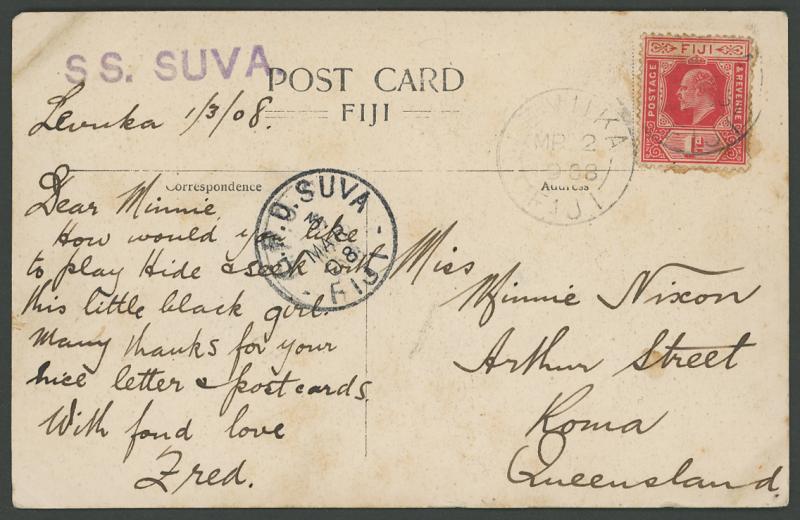 SS. SUVA.
POST CARD
FIJI
Levuka 1/3/08.
Correspondence
Address
Dear Minnie,
How would you like
to play Hide & seek with
this little black girl.
Many thanks for your
nice letter & postcards.
With fond love
Fred.
Miss
Minnie Nixon
Arthur Street
Roma
Queensland.
FIJI
POSTAGE
& REVENUE
1D
LEVUKA
MR 2
FIJI
G.P.O. SUVA
MAR
08
FIJI